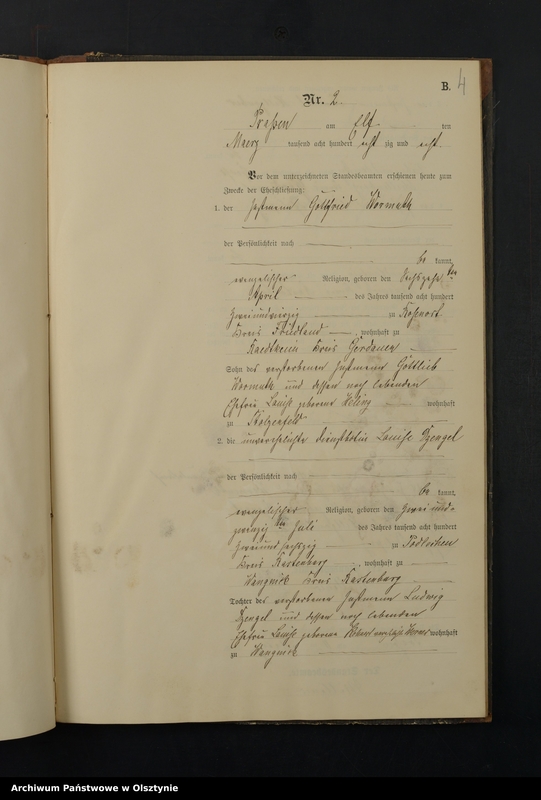 B.
4
Nr. 2.
Praßen am Elf ten
Maerz tausend acht hundert achtzig und acht.
Vor dem unterzeichneten Standesbeamten erschienen heute zum
Zwecke der Eheschließung:
1. der Instmann Gottfried Wormuth
der Persönlichkeit nach
be kannt,
evangelischer Religion, geboren den Sechszehnten
April des Jahres tausend acht hundert
zweiundvierzig zu
Kreis Friedland, wohnhaft zu
Kreis Gerdauen
Sohn des verstorbenen Instmann Gottlieb
Wormuth und dessen noch lebenden
Ehefrau Louise geborene wohnhaft
zu Stolzenfeld
2. die unverehelichte Dienstbotin Louise
der Persönlichkeit nach
be kannt,
evangelischer Religion, geboren den zwei und
zwanzigsten Juli des Jahres tausend acht hundert
zweiundsechszig zu
Kreis Rastenburg, wohnhaft zu
Wangnick Kreis Rastenburg
Tochter des verstorbenen Instmann Ludwig
und dessen noch lebenden
Ehefrau Louise geborene wohnhaft
zu Wangnick
Archiwum Państwowe w Olsztynie